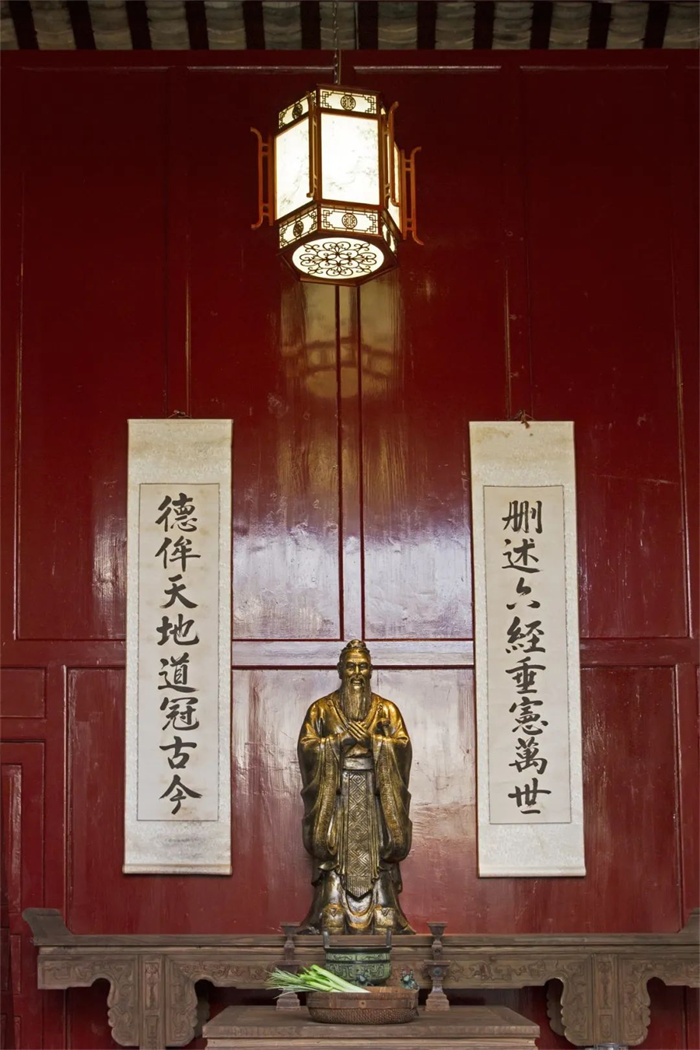 德侔天地道冠古今
删述六經垂憲萬世